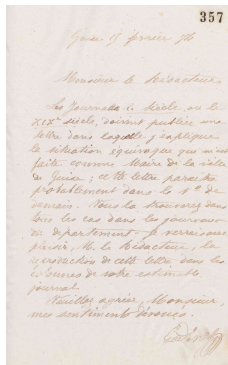 357
Guise 15 février 76
Monsieur le Rédacteur,
Les Journaux le Siècle, ou le
XIXe siècle, doivent publier une
lettre dans laquelle j'explique
la situation équivoque qui m'est
faite comme Maire de la ville
de Guise ; cette lettre paraîtra
probablement dans le No de
demain. Vous la trouverez dans
tous les cas dans les journaux
du département. Je verrais avec
plaisir, M. le Rédacteur, la
reproduction de cette lettre dans les
colonnes de votre estimable
journal.
Veuillez agréer, Monsieur,
mes sentiments dévoués.
Godin